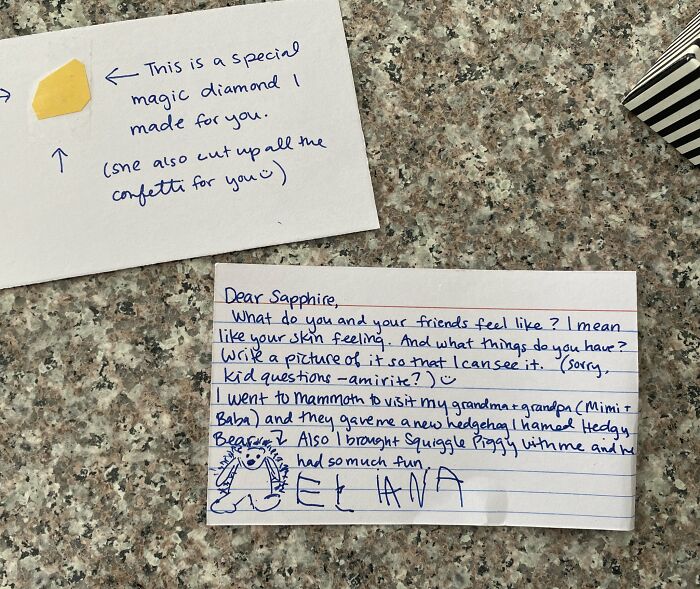 ← This is a special
magic diamond I
made for you.
(she also cut up all the
confetti for you☺)
Dear Sapphire,
What do you and your friends feel like? I mean
like your skin feeling. And what things do you have?
Write a picture of it so that I can see it. (Sorry,
kid questions - amirite?) ☺
I went to Mammoth to visit my grandma + grandpa (Mimi +
Baba) and they gave me a new hedgehog I named Hedgy
Bear. Also I brought Squiggle Piggy with me and he
had so much fun.
ELIANA